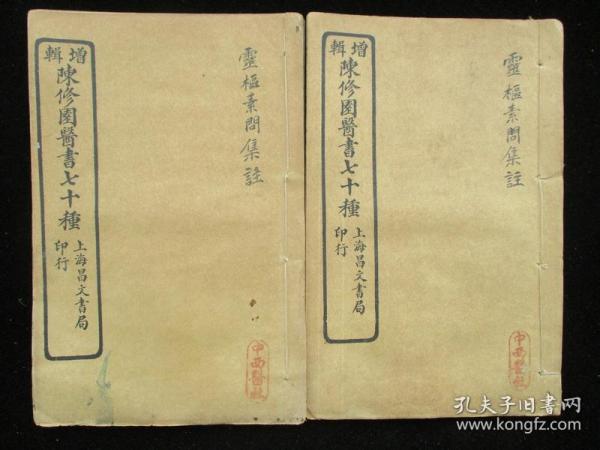 增輯
陳修園醫書七十種
上海昌文書局
印行
靈樞素問集註
中西醫社
增輯
陳修園醫書七十種
上海昌文書局
印行
靈樞素問集註
中西醫社
孔夫子旧书网
www.kongfz.com